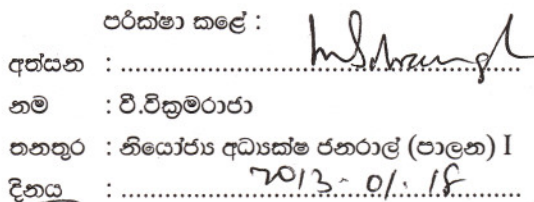 පරීක්ෂා කළේ :
අත්සන : ........................................................
නම : වී.වික්‍රමරාජා
තනතුර : නියෝජ්‍ය අධ්‍යක්ෂ ජනරාල් (පාලන) I
දිනය : ...................2013. 01. 18...................